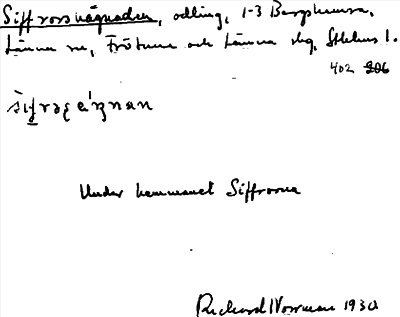 Siffrorsvägnaden, odling, 1-3 Bergshamra,
Länna sn, Frötuna och Länna slg, Sthlms l.
402 206
Under hemmanet Siffrorna
Richard Norrman 1930